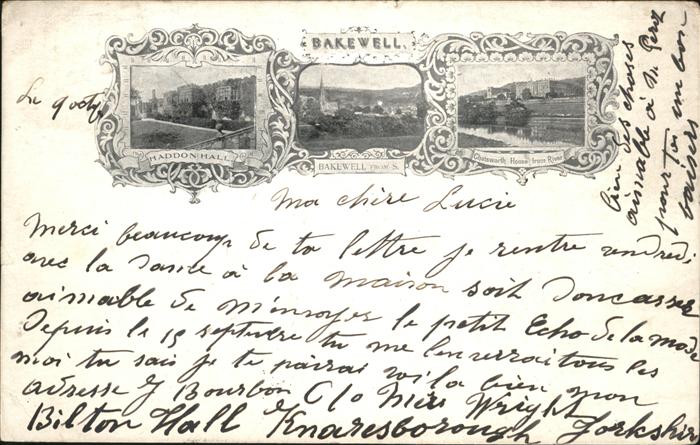 BAKEWELL.
HADDON HALL
BAKEWELL FROM S.
Chatsworth House from River
Le 9 octy
Ma chère Lucie
Merci beaucoup de ta lettre je rentre vendredi
avec la dame à la maison soit
aimable de m'envoyer le petit Echo de la mode
Depuis le 15 septembre tu me l'enverrai tous les
moi tu sais je te pairai voila bien mon
adresse J Bourbon C/o Miss Wright
Bilton Hall Knaresborough Yorkshir
bien des chous
aimable à M.
pour toi un bon
baiser